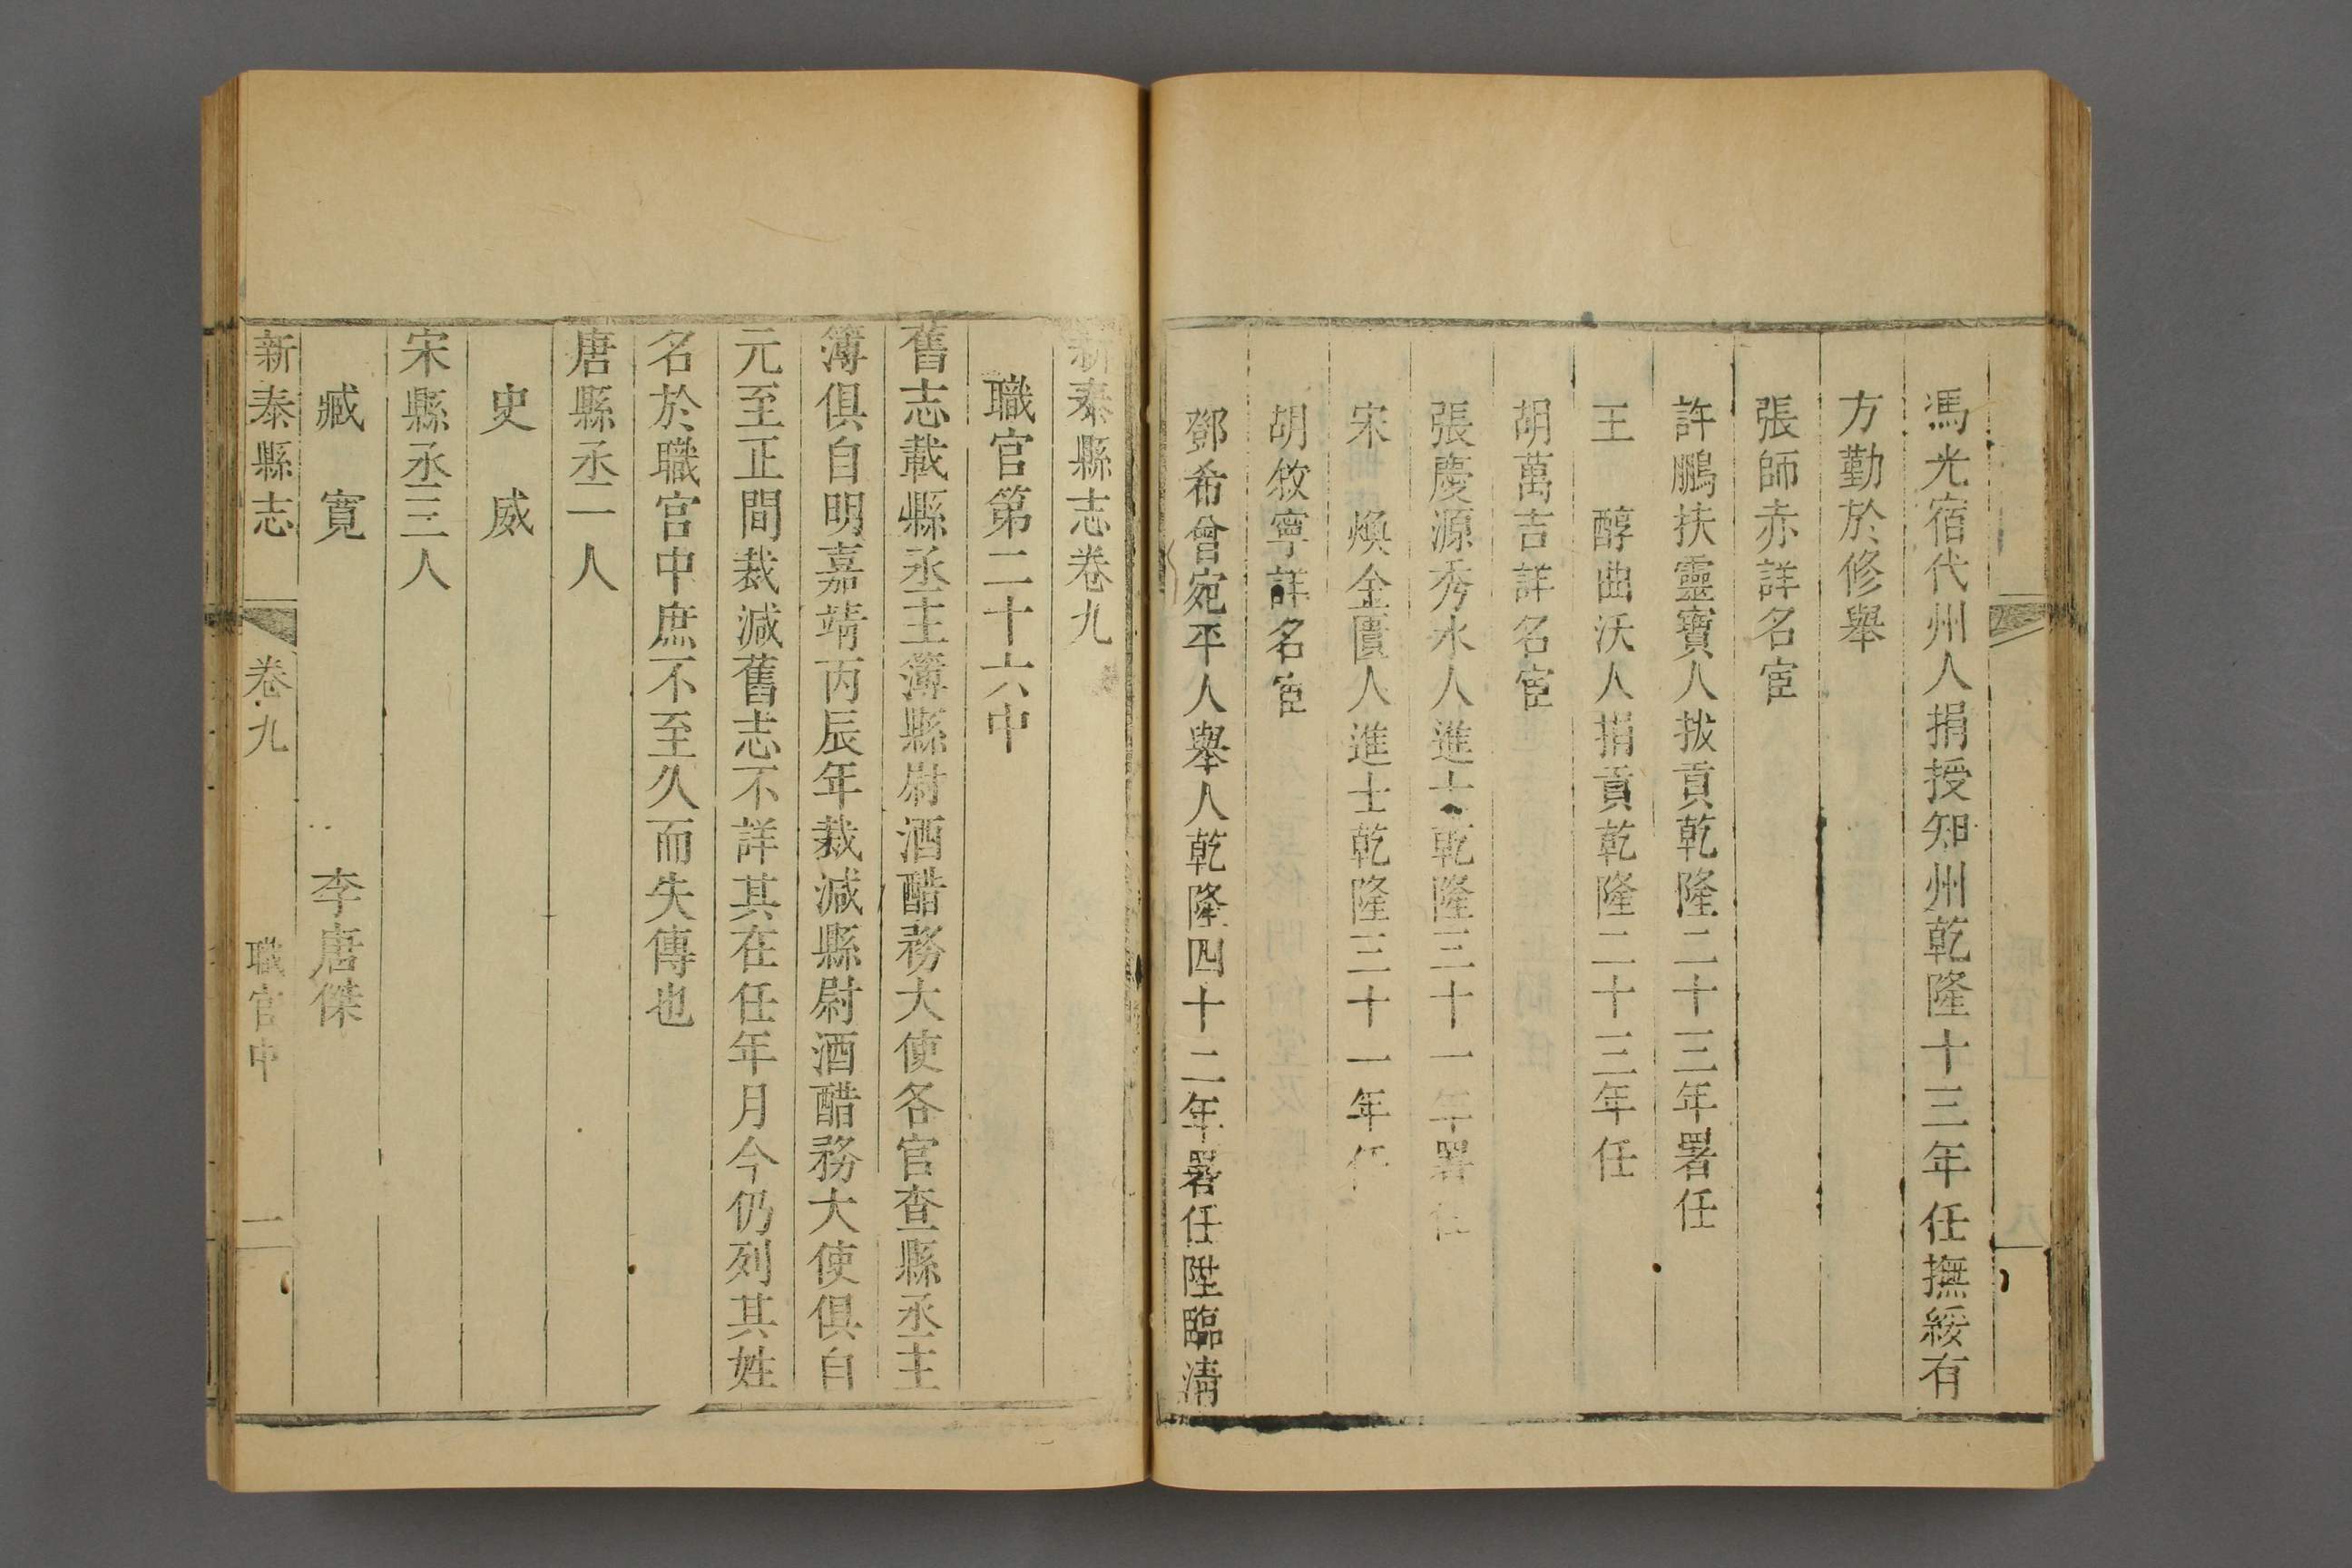 馮光宿代州人捐授知州乾隆十三年任撫綏有
方勤於修舉
張師赤詳名宦
許鵬扶靈寶人拔貢乾隆二十三年署任
王　醇曲沃人捐貢乾隆二十三年任
胡萬吉詳名宦
張慶源秀水人進士乾隆三十一年署任
宋　煥金匱人進士乾隆三十一年任
胡敘寧詳名宦
鄧希曾宛平人舉人乾隆四十二年署任陞臨清
新泰縣志卷九
職官第二十六中
舊志載縣丞主簿縣尉酒醋務大使各官查縣丞主
簿俱自明嘉靖丙辰年裁減縣尉酒醋務大使俱自
元至正間裁減舊志不詳其在任年月今仍列其姓
名於職官中庶不至久而失傳也
唐縣丞一人
史　威
宋縣丞三人
臧　寛　李唐傑
新泰縣志　卷九　職官中　一